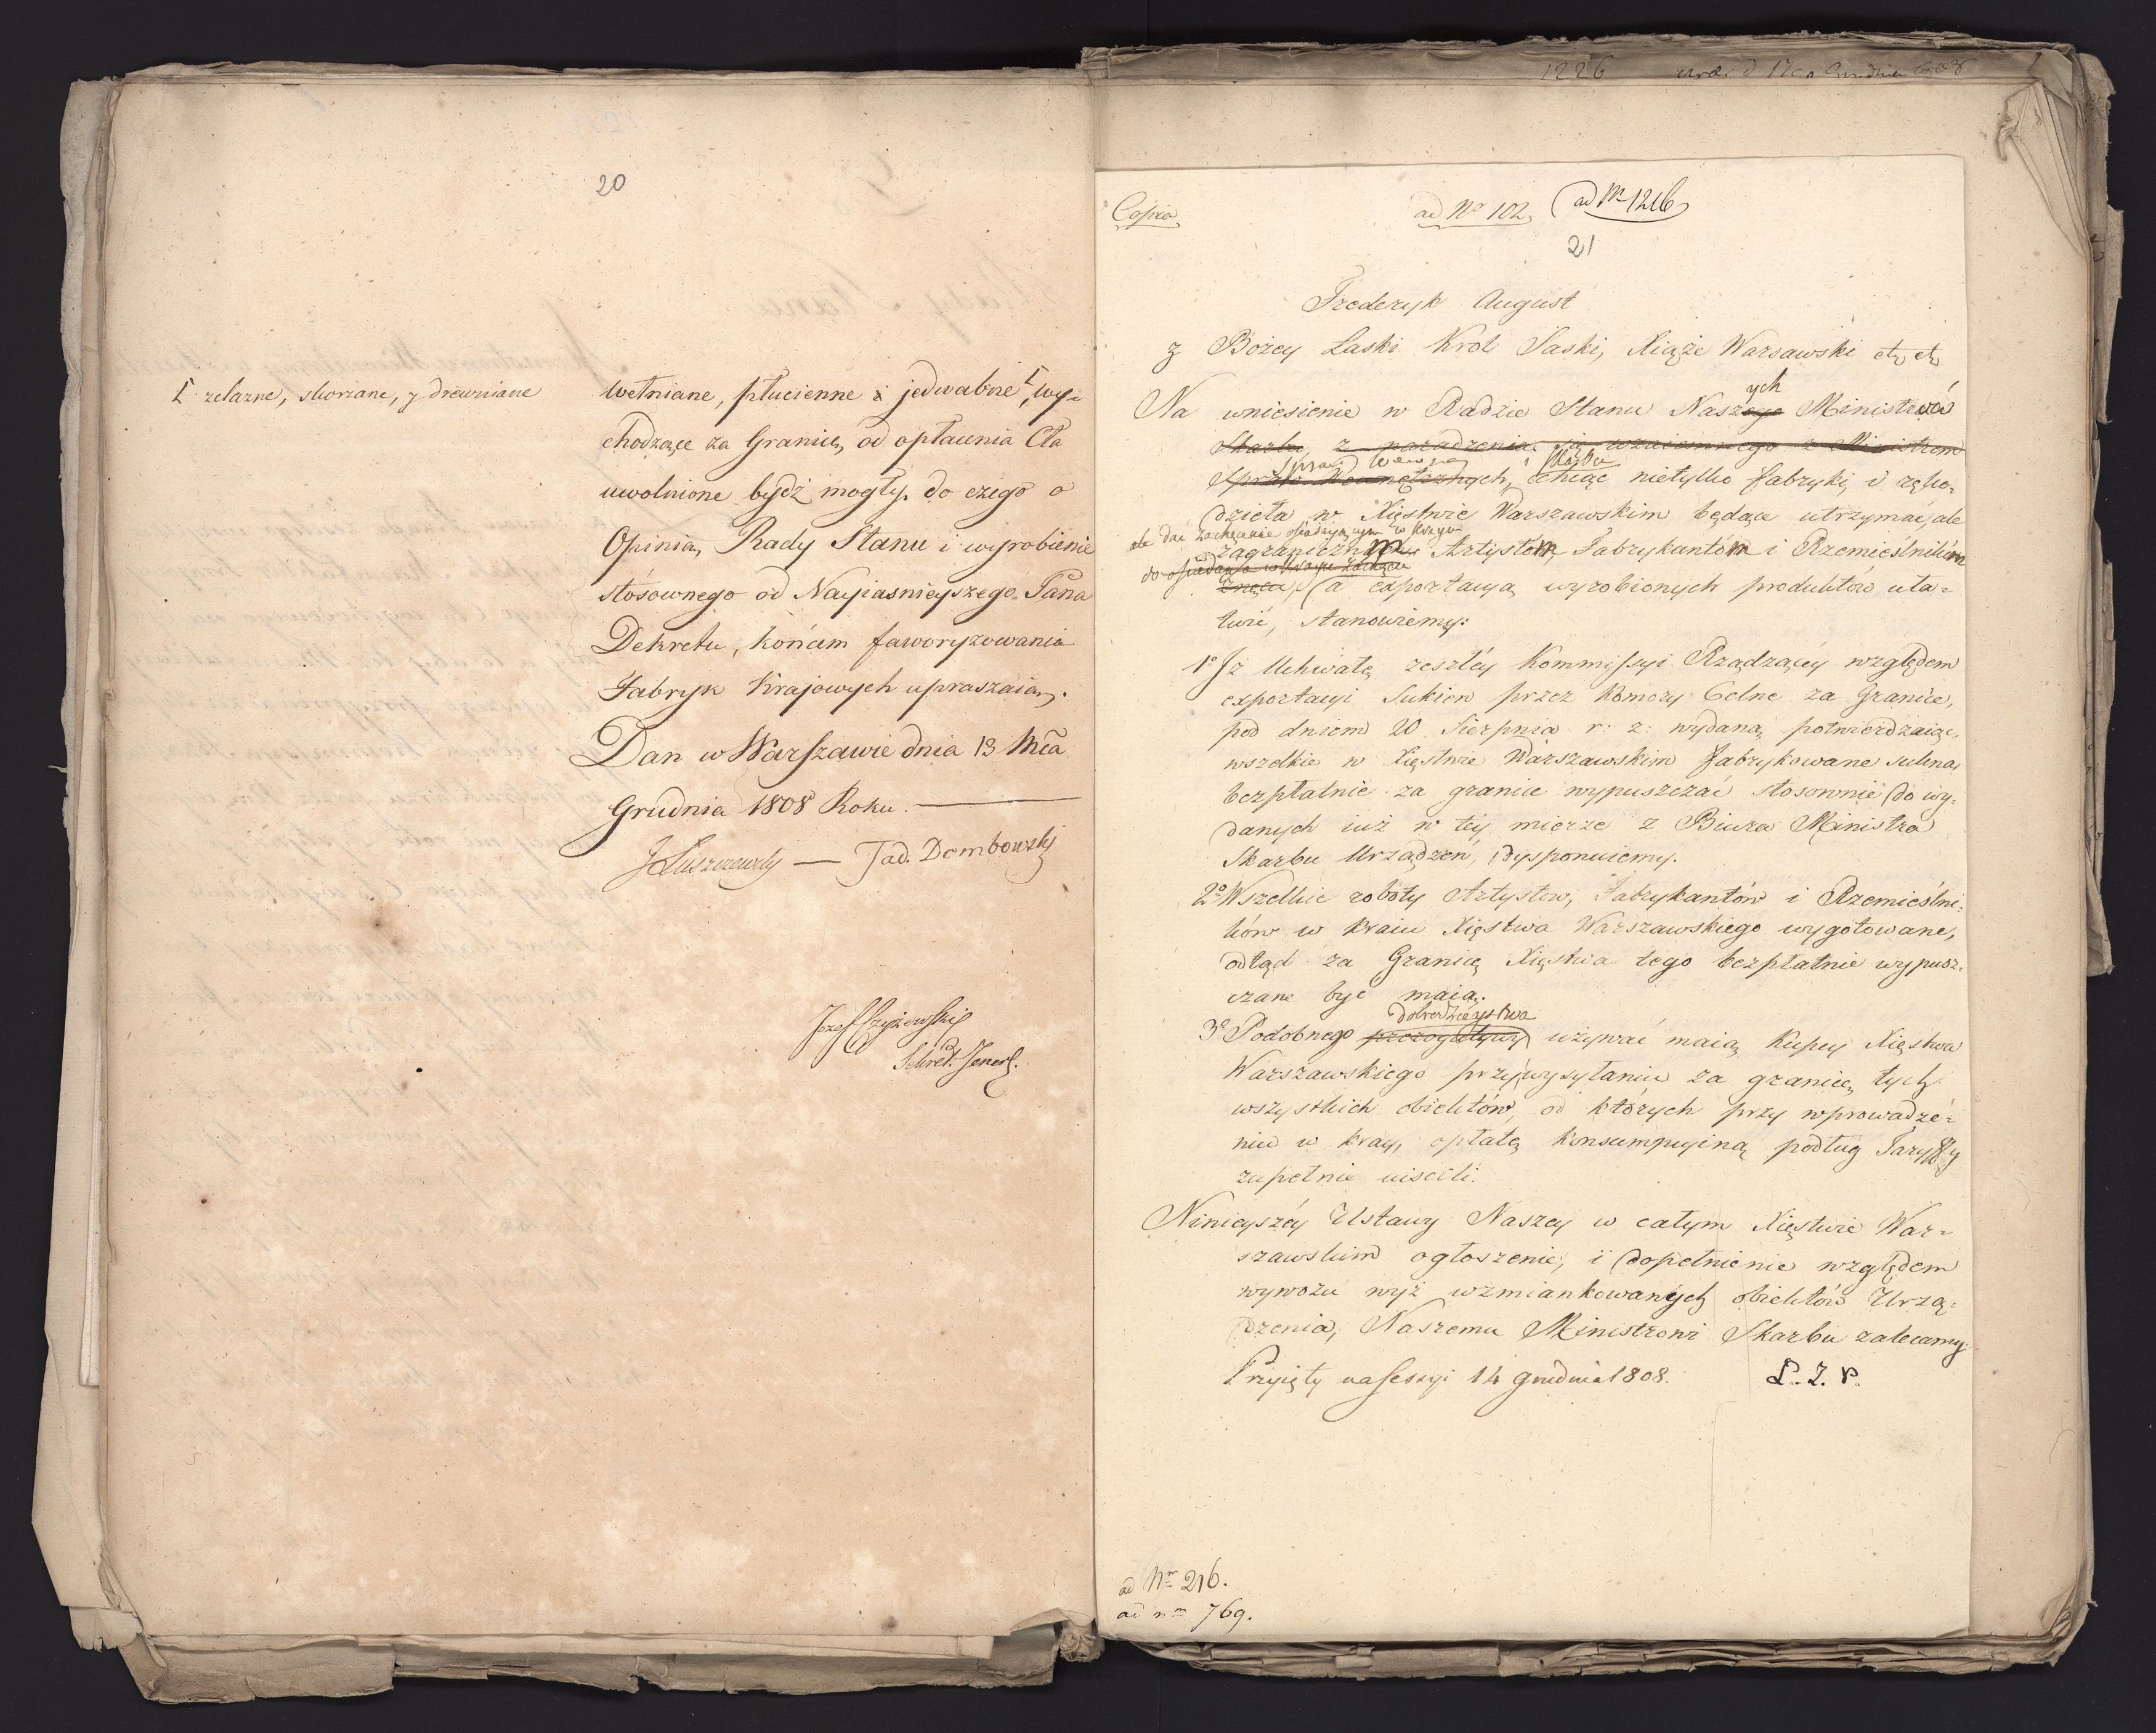 20
Ⱶ zelazne, skorzane, y drewniane
wełniane, płucienne i jedwabne Ⱶ, wy-
chodzące za Granicę, od opłacenia Cła
uwolnione bydź mogły. do czego o
Opinią, Rady Stanu i wyrobienie
stósownego od Nayiasnieyszego Pana
Dekretu, końcem faworyzowania
Fabryk Krajowych upraszaią.
Dan w Warszawie dnia 13 Mca
Grudnia 1808 Roku.
JŁuszczewsky — Tad. Dembowsky
Jozef Czyżewski
Sekret. Jener.
1226
Copia
ad No 102, ad Nr 1216
21
Frederyk August
z Bożey Laski Krol Saski, Xiąże Warsawski etz etz
Na wniesienie w Radzie Stanu Naszego ych Ministrów
Skarbu z naradzenia się wzaiemnego z Ministrem
Spraw Wewnętrznych, i Skarbu chcąc nietylko fabryki, i ręko-
dzieła w Xięstwie Warszawskim będące utrzymać, ale
ale dać zachęcenie osiadaiącym w kraju
zagranicznym Artystóm, Fabrykantóm i Rzemieślnikóm
do osiedania w kraju zachęcić
znęcić, a exportacyą wyrobionych produktów uła-
twić, stanowiemy:
1o Iż Uchwałę zeszłéy Kommissyi Rządzącéy względem
exportacyi Sukien przez Komory Celne za Granice,
pod dniem 20 Sierpnia r: z: wydaną potwierdzaiąc,
wszelkie w Xięstwie Warszawskim fabrykowane sukna,
bezpłatnie za granice wypuszczać stosownie do wy-
danych iuż w téy mierze z Biura Ministra
Skarbu Urządzeń, dysponuiemy.
2o Wszelkie roboty Artystow, Fabrykantów i Rzemieślni-
ków w kraiu Xięstwa Warszawskiego wygotowane,
odtąd za Granicę Xięstwa tego bezpłatnie wypusz-
czane być maią.
dobrodzieystwa
3o Podobnego prerogatywy używać maią Kupcy Xięstwa
Warszawskiego przy wysyłaniu za granicę tych
wszystkich obiektów, od których przy wprowadze-
niu w kray, opłatę konsumpcyiną podług Taryffy
zupełnie uiscili.
Ninieyszéy Ustawy Naszey w całym Xięstwie War-
szawskim ogłoszenie, i dopełnienie względem
wywozu wyż wzmiankowanych obiektów Urzą-
dzenia, Naszemu Ministrowi Skarbu zalecamy
Przyięty na Sessyi 14 grudnia 1808. L. I. P.
ad Nr 216.
ad nr 769.